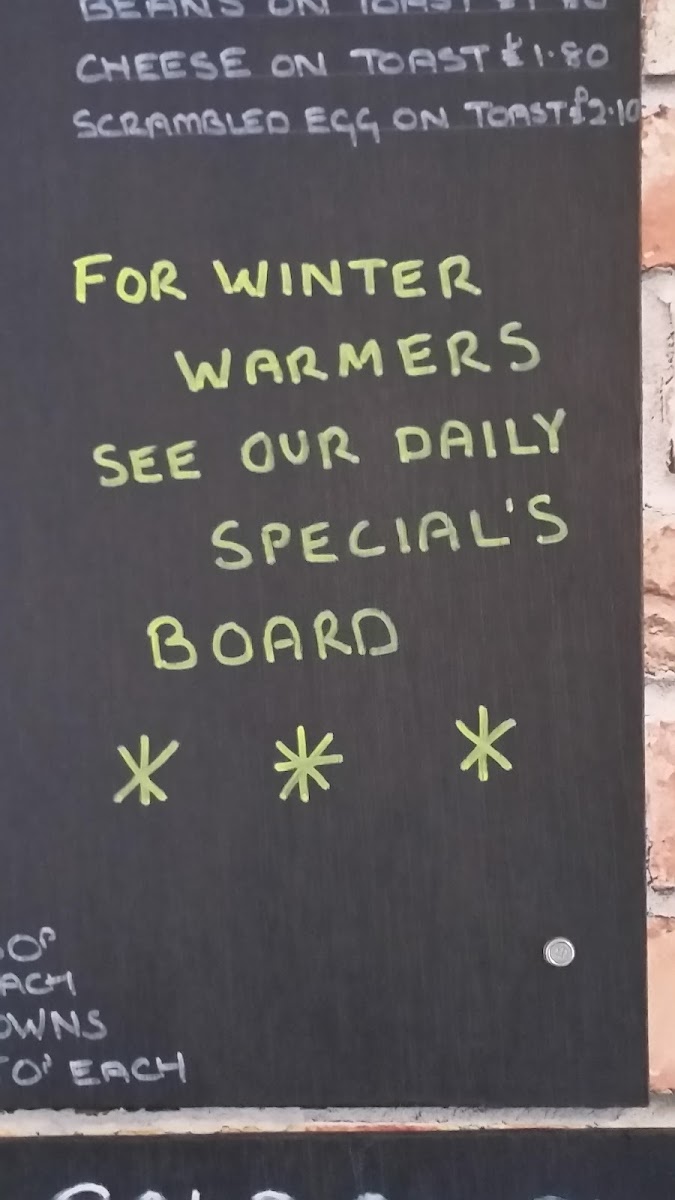 BEANS ON TOAST
CHEESE ON TOAST £1.80
SCRAMBLED EGG ON TOAST £2.10
FOR WINTER
WARMERS
SEE OUR DAILY
SPECIAL'S
BOARD
* * *
EACH